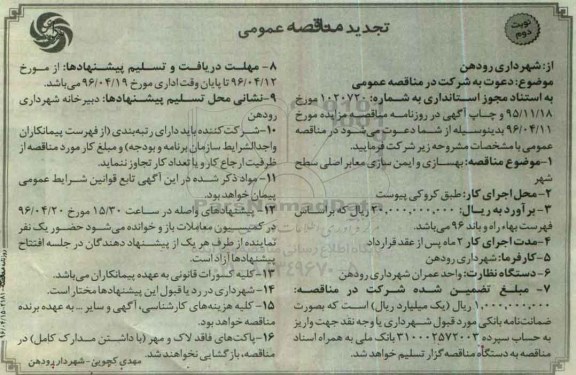 تجدید مناقصه عمومی
نوبت دوم
از: شهرداری رودهن
موضوع: دعوت به شرکت در مناقصه عمومی
به استناد مجوز استانداری به شماره: ۱۰۲۰۷۳۰ مورخ
۹۵/۱۱/۱۸ و چاپ آگهی در روزنامه مناقصه مزایده مورخ
۹۶/۰۴/۱۱ بدینوسیله از شما دعوت می‌شود در مناقصه
عمومی با مشخصات مشروحه زیر شرکت فرمایید.
۱- موضوع مناقصه: بهسازی و ایمن سازی معابر اصلی سطح
شهر
۲- محل اجرای کار: طبق کروکی پیوست
۳- برآورد به ریال: ۲۰,۰۰۰,۰۰۰,۰۰۰ ریال که براساس
فهرست بهاء راه و باند ۹۶ می‌باشد.
۴- مدت اجرای کار ۲ ماه پس از عقد قرارداد
۵- کارفرما: شهرداری رودهن
۶- دستگاه نظارت: واحد عمران شهرداری رودهن
۷- مبلغ تضمین شده شرکت در مناقصه:
۱,۰۰۰,۰۰۰,۰۰۰ ریال (یک میلیارد ریال) است که بصورت
ضمانت‌نامه بانکی مورد قبول شهرداری یا وجه نقد جهت واریز
به حساب سپرده ۳۱۰۰۰۲۵۷۲۰۰۳ بانک ملی به همراه اسناد
مناقصه به دستگاه مناقصه گزار تسلیم خواهد شد.
۸- مهلت دریافت و تسلیم پیشنهادها: از مورخ
۹۶/۰۴/۱۲ تا پایان وقت اداری مورخ ۹۶/۰۴/۱۹ می‌باشد.
۹- نشانی محل تسلیم پیشنهادها: دبیرخانه شهرداری
رودهن
۱۰- شرکت کننده باید دارای رتبه‌بندی (از فهرست پیمانکاران
واجدالشرایط سازمان برنامه و بودجه) و مبلغ کار مورد مناقصه از
ظرفیت ارجاع کار و یا تعداد کار تجاوز ننماید.
۱۱- مواد ذکر شده در این آگهی تابع قوانین شرایط عمومی
پیمان خواهد بود.
۱۲- پیشنهادهای واصله در ساعت ۱۵/۳۰ مورخ ۹۶/۰۴/۲۰
در کمیسیون معاملات باز و خوانده می‌شود حضور یک نفر
نماینده از طرف هر یک از پیشنهاد دهندگان در جلسه افتتاح
پیشنهادها آزاد است.
۱۳- کلیه کسورات قانونی به عهده پیمانکاران می‌باشد.
۱۴- شهرداری در رد یا قبول این پیشنهادها مختار است.
۱۵- کلیه هزینه‌های کارشناسی، آگهی و سایر ... به عهده برنده
مناقصه خواهد بود.
۱۶- پاکت‌های فاقد لاک و مهر (با داشتن مدارک کامل) در
مناقصه، بازگشایی نخواهند شد.
مهدی کچویی - شهردار رودهن
ParsNamadData